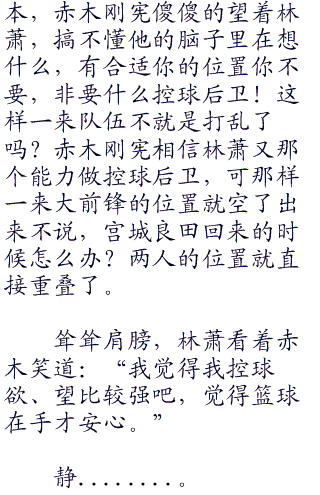 本，赤木刚宪傻傻的望着林
萧，搞不懂他的脑子里在想
什么，有合适你的位置你不
要，非要什么控球后卫！这
样一来队伍不就是打乱了
吗？赤木刚宪相信林萧又那
个能力做控球后卫，可那样
一来大前锋的位置就空了出
来不说，宫城良田回来的时
候怎么办？两人的位置就直
接重叠了。
耸耸肩膀，林萧看着赤
木笑道：“我觉得我控球
欲、望比较强吧，觉得篮球
在手才安心。”
静........。